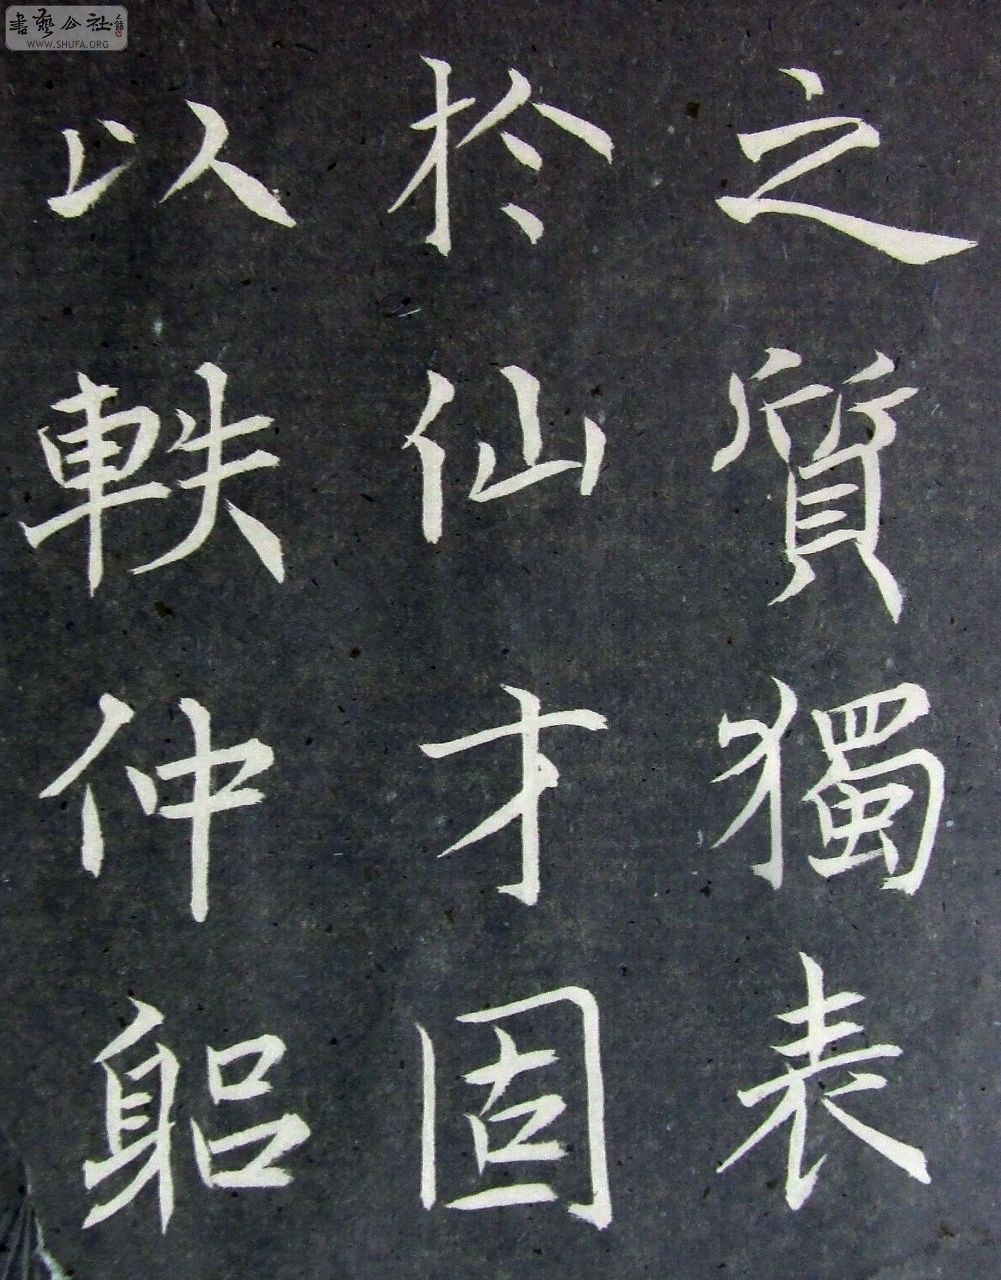 之質獨表
於仙才固
以軼仲躳
書藝公社
WWW.SHUFA.ORG